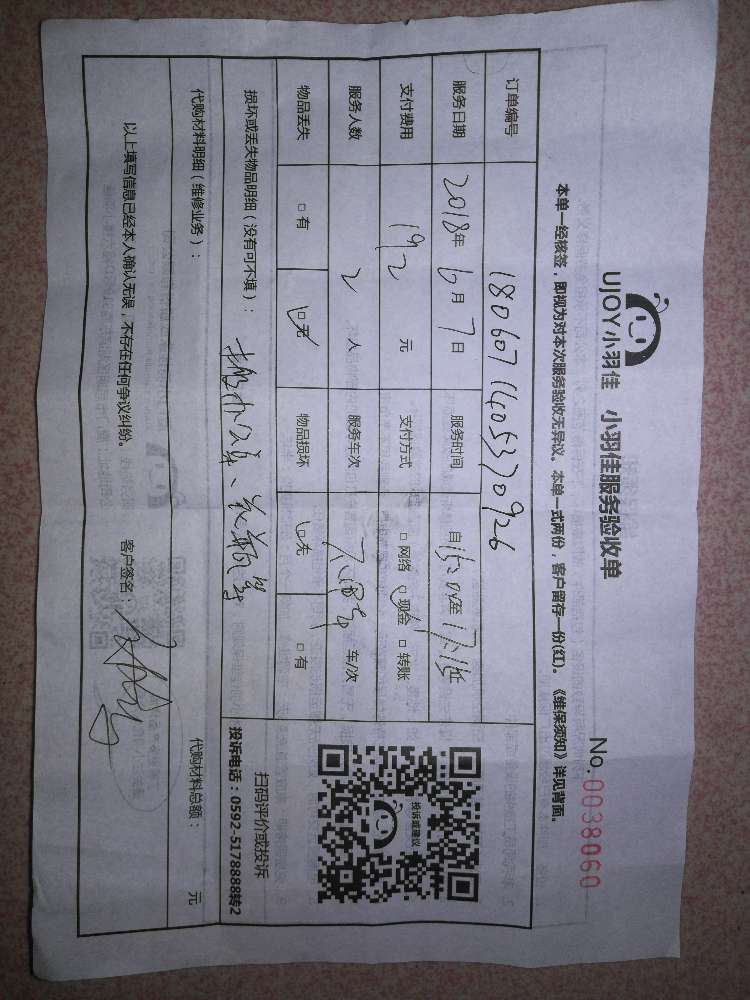 UJOY小羽佳 小羽佳服务验收单
No.0038060
本单一经核签，即视为对本次服务验收无异议。本单一式两份，客户留存一份(红)。《维保须知》详见背面。
订单编号 180607140533070926
服务日期 2018年6月7日 服务时间 自15:04至17:15止
支付费用 192元 支付方式 □网络 □现金 □转账
服务人数 2人 服务车次 不用车 车/次
物品丢失 □有 □无 物品损坏 □无 □有
损坏或丢失物品明细（没有可不填）： 搬办公桌、花瓶等
代购材料明细（维修业务）： 代购材料总额： 元
以上填写信息已经本人确认无误，不存在任何争议纠纷。 客户签名
投诉或建议
扫码评价或投诉
投诉电话：0592-5178888转2